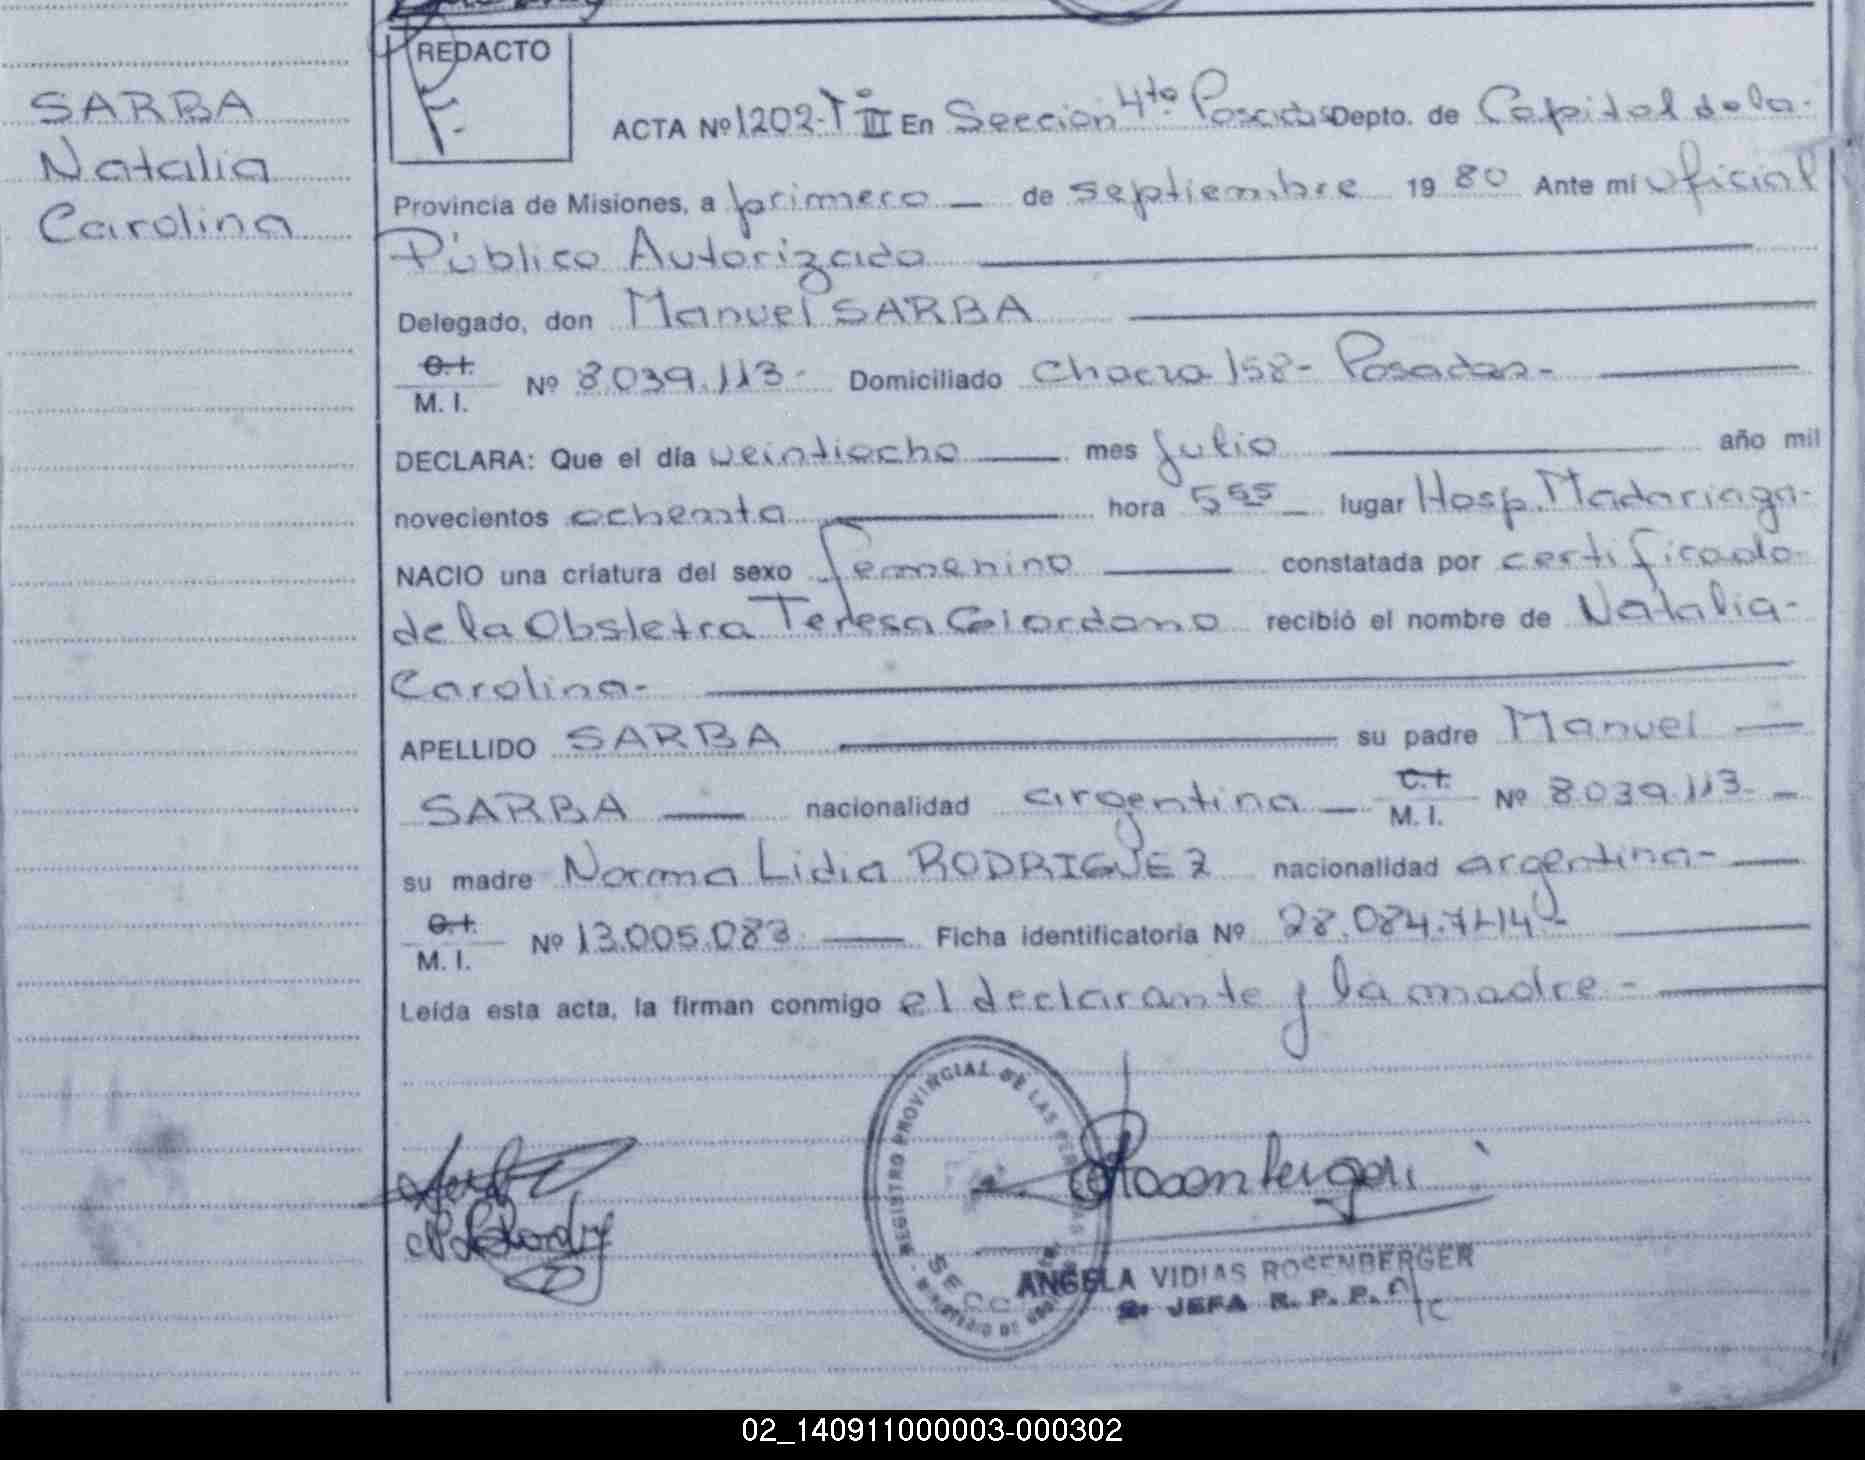 REDACTO
F.
SARBA
Natalia
Carolina
ACTA Nº 1202-Tº III En Seccion 4ta. Posadas Depto. de Capital de la-
Provincia de Misiones, a primero — de septiembre 19 80 Ante mí Oficial
Público Autorizado
Delegado, don Manuel SARBA
C.I. M. I. Nº 8.039.113- Domiciliado Chacra 158- Posadas-
DECLARA: Que el día veintiocho mes Julio año mil
novecientos ochenta hora 5 55 lugar Hosp. Madariaga-
NACIO una criatura del sexo femenino constatada por certificado
de la Obsletra Teresa Giordano recibió el nombre de Natalia-
Carolina-
APELLIDO SARBA su padre Manuel
SARBA nacionalidad argentina C.I. M. I. Nº 8.039.113-
su madre Norma Lidia RODRIGUEZ nacionalidad argentina-
C.I. M. I. Nº 13.005.083 Ficha identificatoria Nº 28.084.714-
Leída esta acta, la firman conmigo el declarante y la madre-
REGISTRO PROVINCIAL DE LAS PERSONAS
ANGELA VIDIAS ROSENBERGER
JEFA R. P. P.
02_140911000003-000302